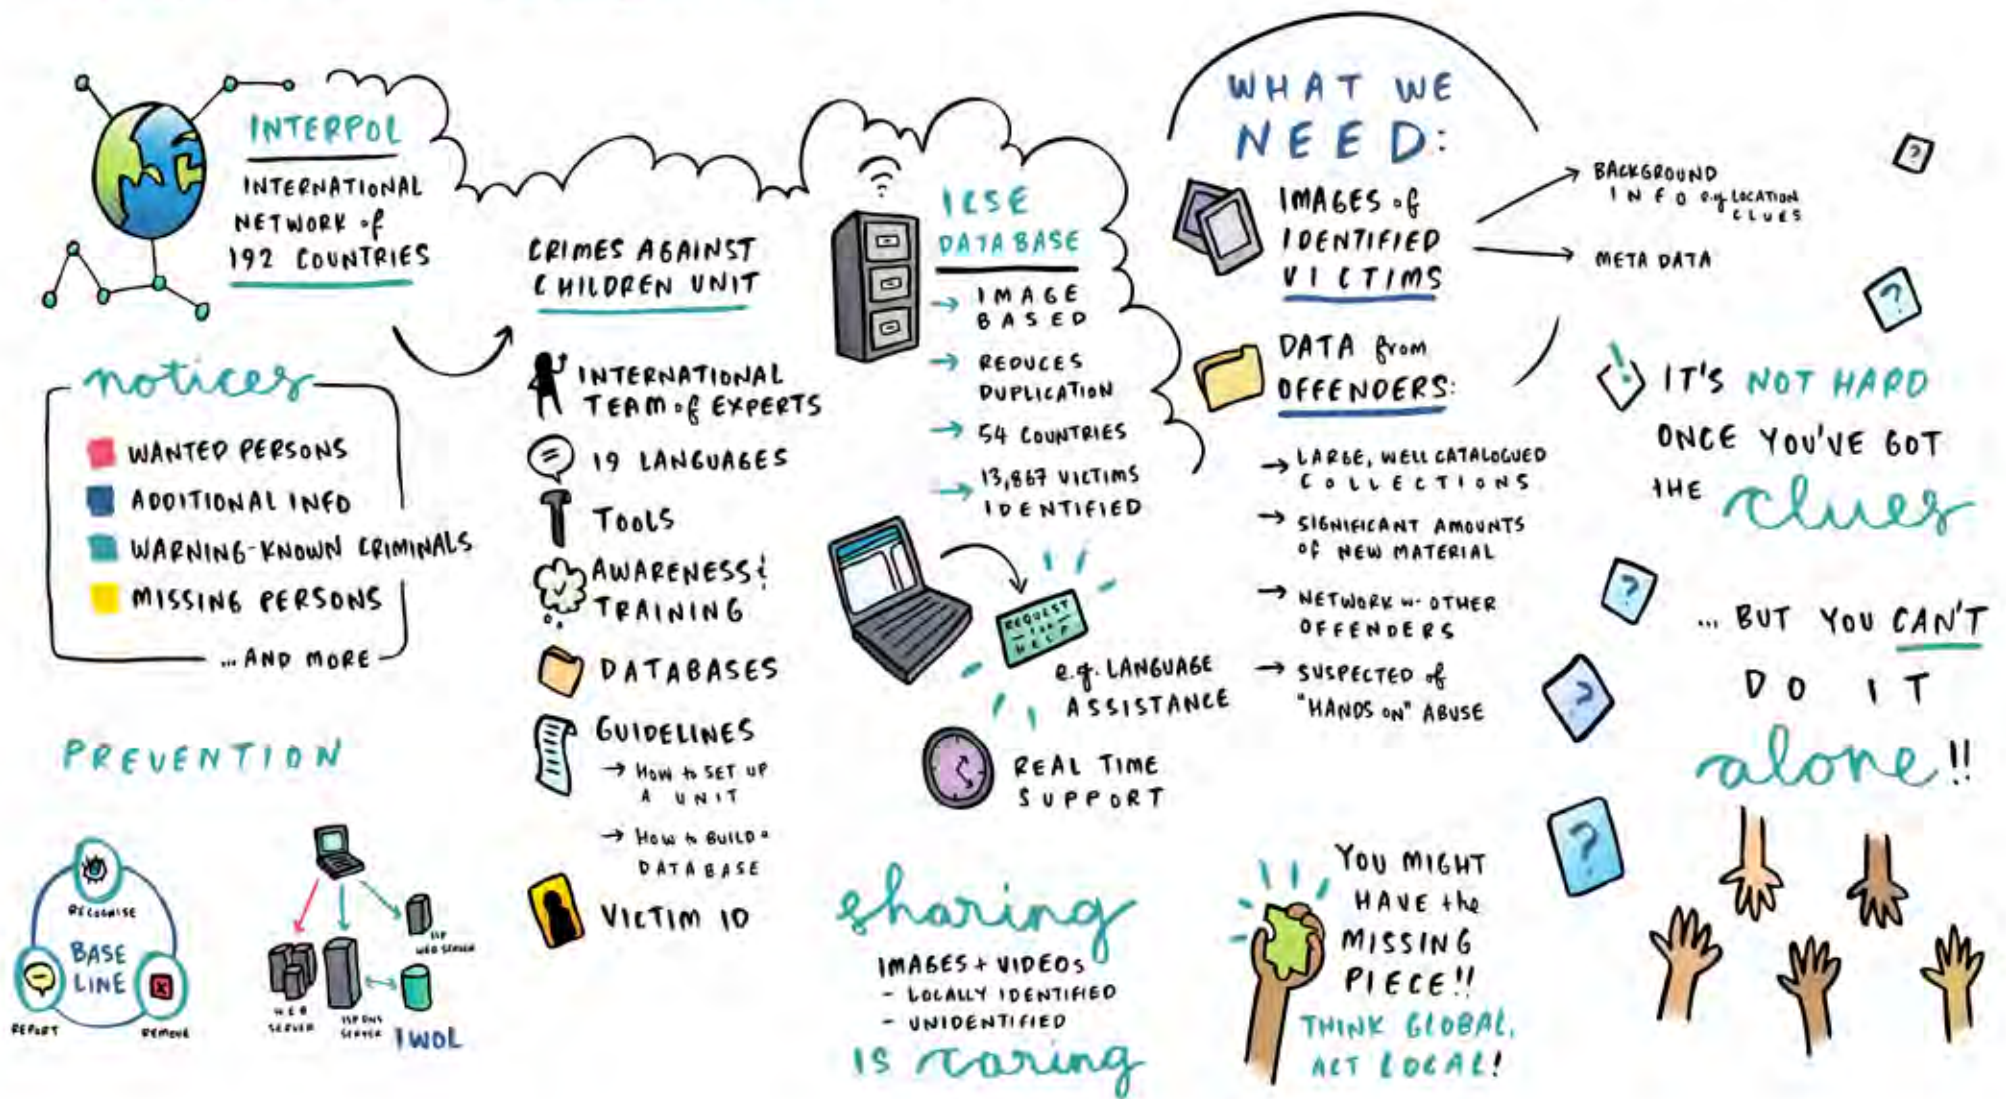 INTERPOL
INTERNATIONAL
NETWORK of
192 COUNTRIES
notices
WANTED PERSONS
ADDITIONAL INFO
WARNING-KNOWN CRIMINALS
MISSING PERSONS
...AND MORE
PREVENTION
RECOGNISE
BASE
LINE
REPORT
REMOVE
ISP
WEB SERVER
WEB
SERVER
ISP DNS
SERVER
IWOL
CRIMES AGAINST
CHILDREN UNIT
INTERNATIONAL
TEAM of EXPERTS
19 LANGUAGES
TOOLS
AWARENESS &
TRAINING
DATABASES
GUIDELINES
→ HOW to SET UP
A UNIT
→ HOW to BUILD a
DATABASE
VICTIM ID
ICSE
DATABASE
→ IMAGE
BASED
→ REDUCES
DUPLICATION
→ 54 COUNTRIES
→ 13,867 VICTIMS
IDENTIFIED
REQUEST
FOR
HELP
e.g. LANGUAGE
ASSISTANCE
REAL TIME
SUPPORT
sharing
IMAGES + VIDEOS
- LOCALLY IDENTIFIED
- UNIDENTIFIED
IS caring
WHAT WE
NEED:
IMAGES of
IDENTIFIED
VICTIMS
BACKGROUND
INFO e.g LOCATION
CLUES
META DATA
DATA from
OFFENDERS:
→ LARGE, WELL CATALOGUED
COLLECTIONS
→ SIGNIFICANT AMOUNTS
OF NEW MATERIAL
→ NETWORK w- OTHER
OFFENDERS
→ SUSPECTED of
"HANDS ON" ABUSE
YOU MIGHT
HAVE the
MISSING
PIECE!!
THINK GLOBAL,
ACT LOCAL!
?
?
!
IT'S NOT HARD
ONCE YOU'VE GOT
THE clues
?
... BUT YOU CAN'T
DO IT
alone!!
?
?